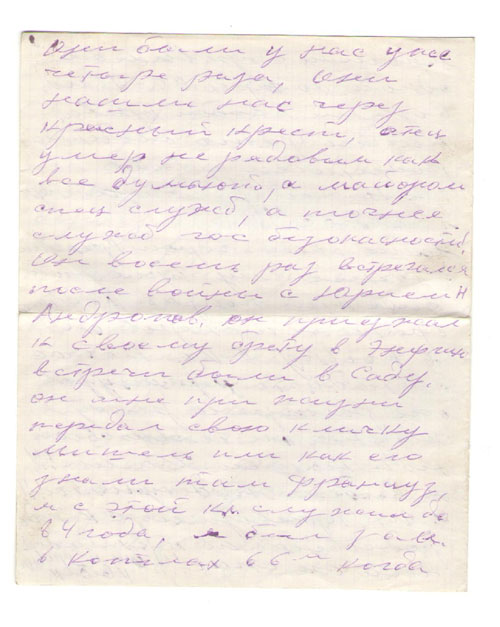 они были у нас уже
четыре раза, они
нашли нас через
красный крест, отец
умер не рядовым как
все думают, а майором
спец служб, а точнее
служб гос безопасности
он восемь раз встречался
после войны с Юрием
Андропов. он приезжал
к своему брату в
встречи были в саду.
он мне при жизни
передал свою кличку
Мишель или как его
знали там француз,
и с этой служил
4 года, я был
в 66 м когда